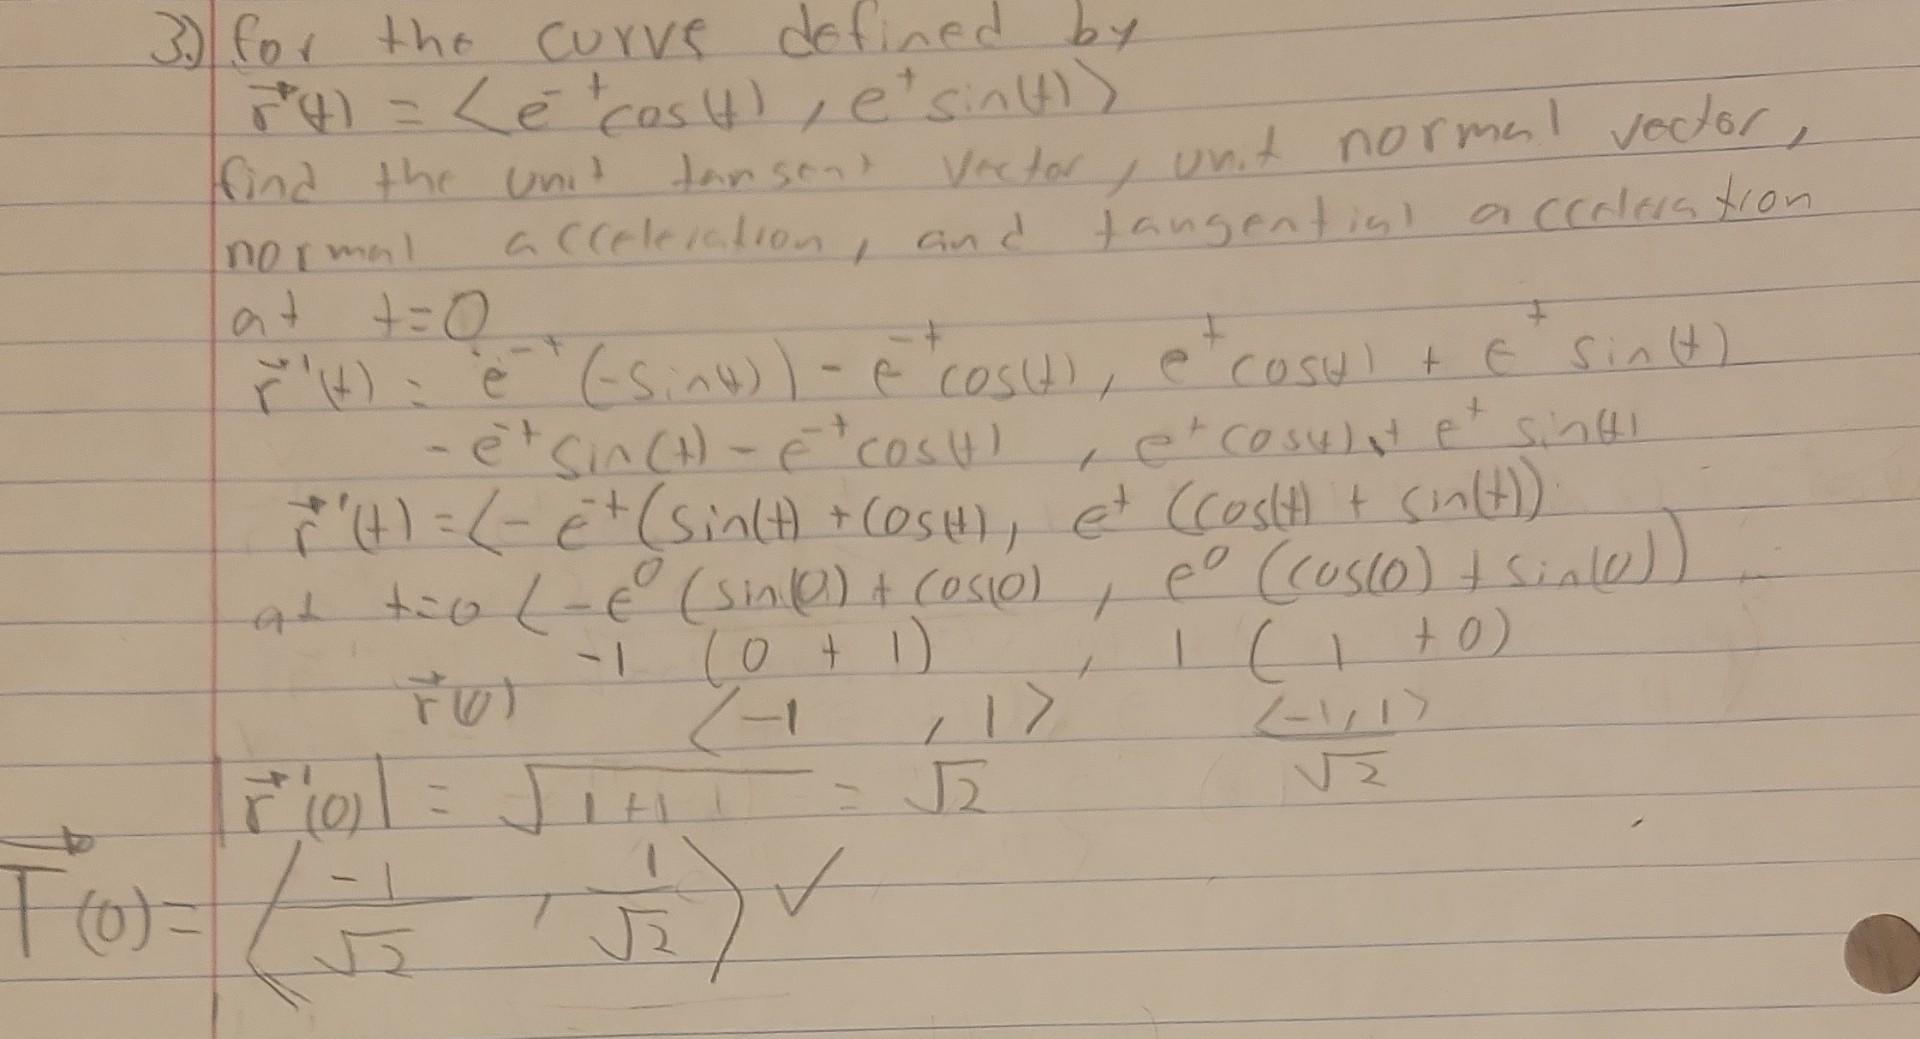 3.) for the curve defined by
r⃗(t) = <e^-t cos(t), e^t sin(t)>
find the unit tangent vector, unit normal vector,
normal acceleration, and tangential acceleration
at t=0
r⃗'(t) = e^-t (-sin(t)) - e^-t cos(t), e^t cos(t) + e^t sin(t)
-e^-t sin(t) - e^-t cos(t), e^t cos(t) + e^t sin(t)
r⃗'(t) = <-e^-t (sin(t) + cos(t), e^t (cos(t) + sin(t))
at t=0 <-e^0 (sin(0) + cos(0), e^0 (cos(0) + sin(0))
-1 (0 + 1), 1 (1 + 0)
r⃗(0) <-1, 1> <-1,1>/√2
|r⃗'(0)| = √1+1 = √2
T⃗(0) = <-1/√2, 1/√2> ✓